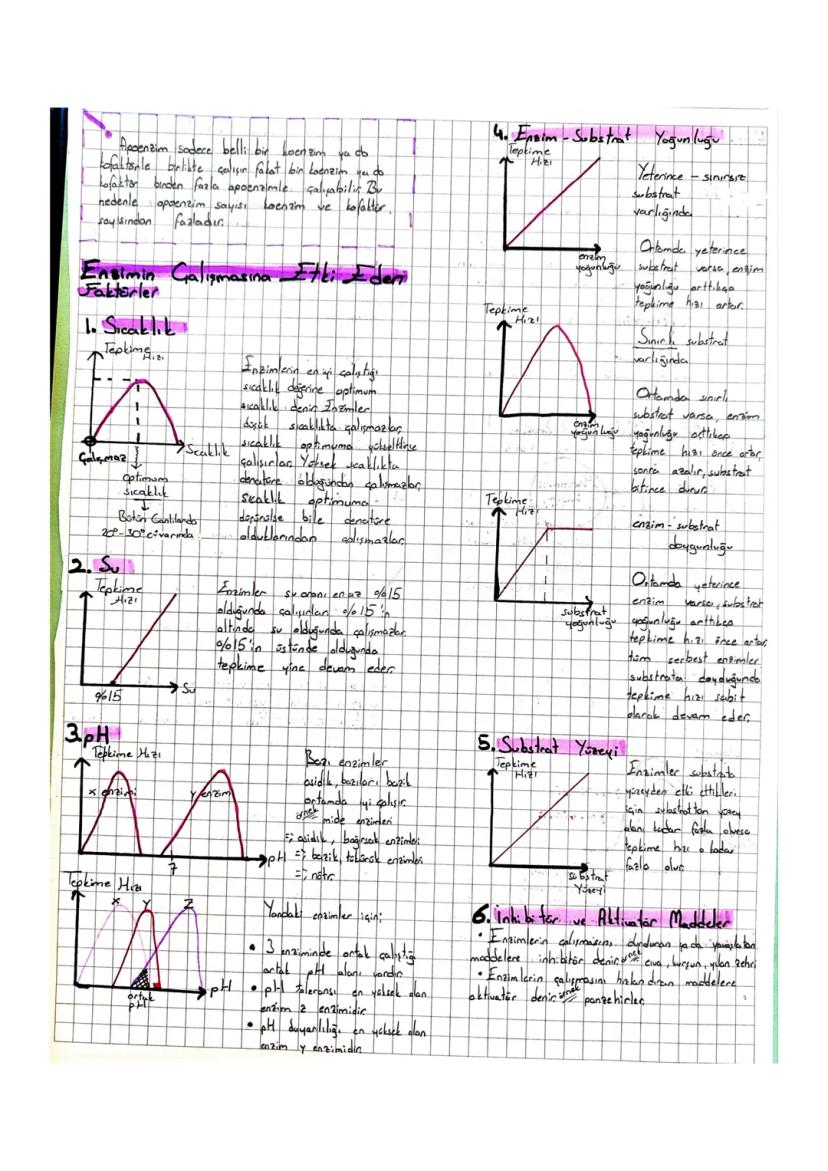 Apoenzim sadece belli bir koenzim ya da
kofaktörle birlikte çalışır fakat bir koenzim ya da
kofaktör birden fazla apoenzimle çalışabilir. Bu
nedenle apoenzim sayısı koenzim ve kofaktör
sayısından fazladır.
Enzimin Çalışmasına Etki Eden
Faktörler
1. Sıcaklık
Tepkime
Hızı
Sıcaklık
Çalışmaz
optimum
sıcaklık
Bütün Canlılarda
Enzimlerin en iyi çalıştığı
sıcaklık değerine optimum
sıcaklık denir. Enzimler
düşük sıcaklıkta çalışmazlar,
sıcaklık optimuma yükseltilince
çalışırlar. Yüksek sıcaklıkta
denatüre olduğundan çalışmazlar,
sıcaklık optimuma
düşürülse bile denatüre
olduklarından çalışmazlar.
2. Su
Tepkime
Hızı
%15
Su
Enzimler su oranı en az %15
olduğunda çalışırlar. %15'in
altında su olduğunda çalışmazlar.
%15'in üstünde olduğunda
tepkime yine devam eder.
3. pH
Tepkime Hızı
x enzimi
y enzim
7
pH
Bazı enzimler
asidik, bazıları bazik
ortamda iyi çalışır.
örnek mide enzimleri
=; asidik, bağırsak enzimleri
=; bazik, tükürük enzimleri
=; nötr.
Tepkime Hızı
X Y Z
pH
ortak
pH
Yandaki enzimler için;
• 3 enziminde ortak çalıştığı
ortak pH alanı vardır.
• pH toleransı en yüksek olan
enzim z enzimidir.
• pH duyarlılığı en yüksek olan
enzim y enzimidir.
4. Enzim - Substrat Yoğunluğu
Tepkime
Hızı
enzim
yoğunluğu
Yeterince - sınırsız
substrat
varlığında
Ortamda yeterince
substrat varsa, enzim
yoğunluğu arttıkça
tepkime hızı artar.
Tepkime
Hızı
enzim
yoğunluğu
Sınırlı substrat
varlığında
Ortamda sınırlı
substrat varsa, enzim
yoğunluğu arttıkça
tepkime hızı önce artar,
sonra azalır, substrat
bitince durur.
Tepkime
Hızı
substrat
yoğunluğu
enzim - substrat
doygunluğu
Ortamda yeterince
enzim varsa, substrat
yoğunluğu arttıkça
tepkime hızı önce artar,
tüm serbest enzimler
substrata doyduğunda
tepkime hızı sabit
olarak devam eder.
5. Substrat Yüzeyi
Tepkime
Hızı
substrat
Yüzeyi
Enzimler substrata
yüzeyden etki ettikleri
için substrattan yüzey
alanı kadar fazla olursa
tepkime hızı o kadar
fazla olur.
6. İnhibitör ve Aktivatör Maddeler
• Enzimlerin çalışmasını durduran ya da yavaşlatan
maddelere inhibitör denir. örnek civa, kurşun, yılan zehri
• Enzimlerin çalışmasını hızlandıran maddelere
aktivatör denir. örnek panzehirler.